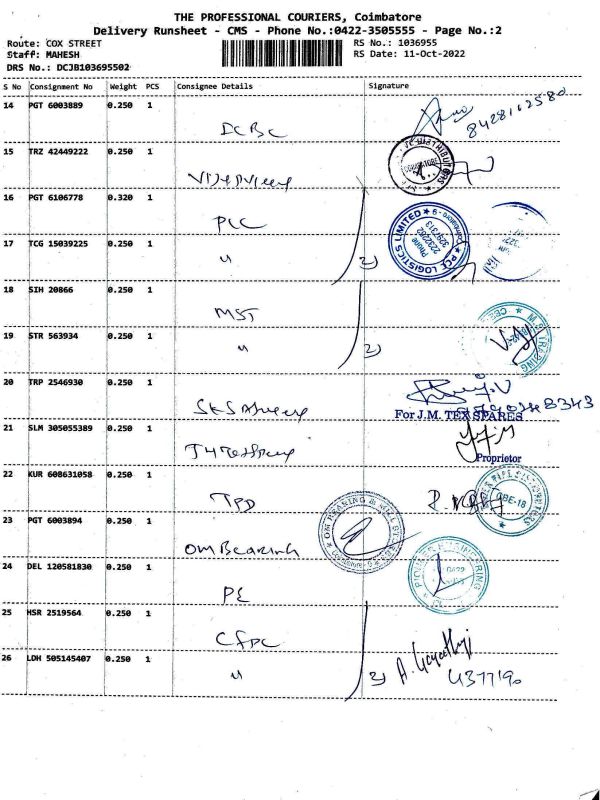 THE PROFESSIONAL COURIERS, Coimbatore
Delivery Runsheet - CMS - Phone No.:0422-3505555 - Page No.:2
Route: COX STREET RS No.: 1036955
Staff: MAHESH RS Date: 11-Oct-2022
DRS No.: DCJB103695502
S No Consignment No Weight PCS Consignee Details Signature
14 PGT 6003889 0.250 1
DCBC
8428102580
15 TRZ 42449222 0.250 1
16 PGT 6106778 0.320 1
PCE LOGISTICS LIMITED
Phone
2232282
3297313
Coimbatore - 9
17 TCG 15039225 0.250 1
"
2)
18 SIH 20866 0.250 1
MST
19 STR 563934 0.250 1
"
2)
20 TRP 2546930 0.250 1
For J.M. TEX SPARES
21 SLM 305055389 0.250 1
Proprietor
22 KUR 608631058 0.250 1
TPD
OM BEARING & MILL STORES
23 PGT 6003894 0.250 1
OM Bearing
24 DEL 120581830 0.250 1
PE
PIONEER ENGINEERING
25 HSR 2519564 0.250 1
CFPC
26 LDH 505145407 0.250 1
"
2)